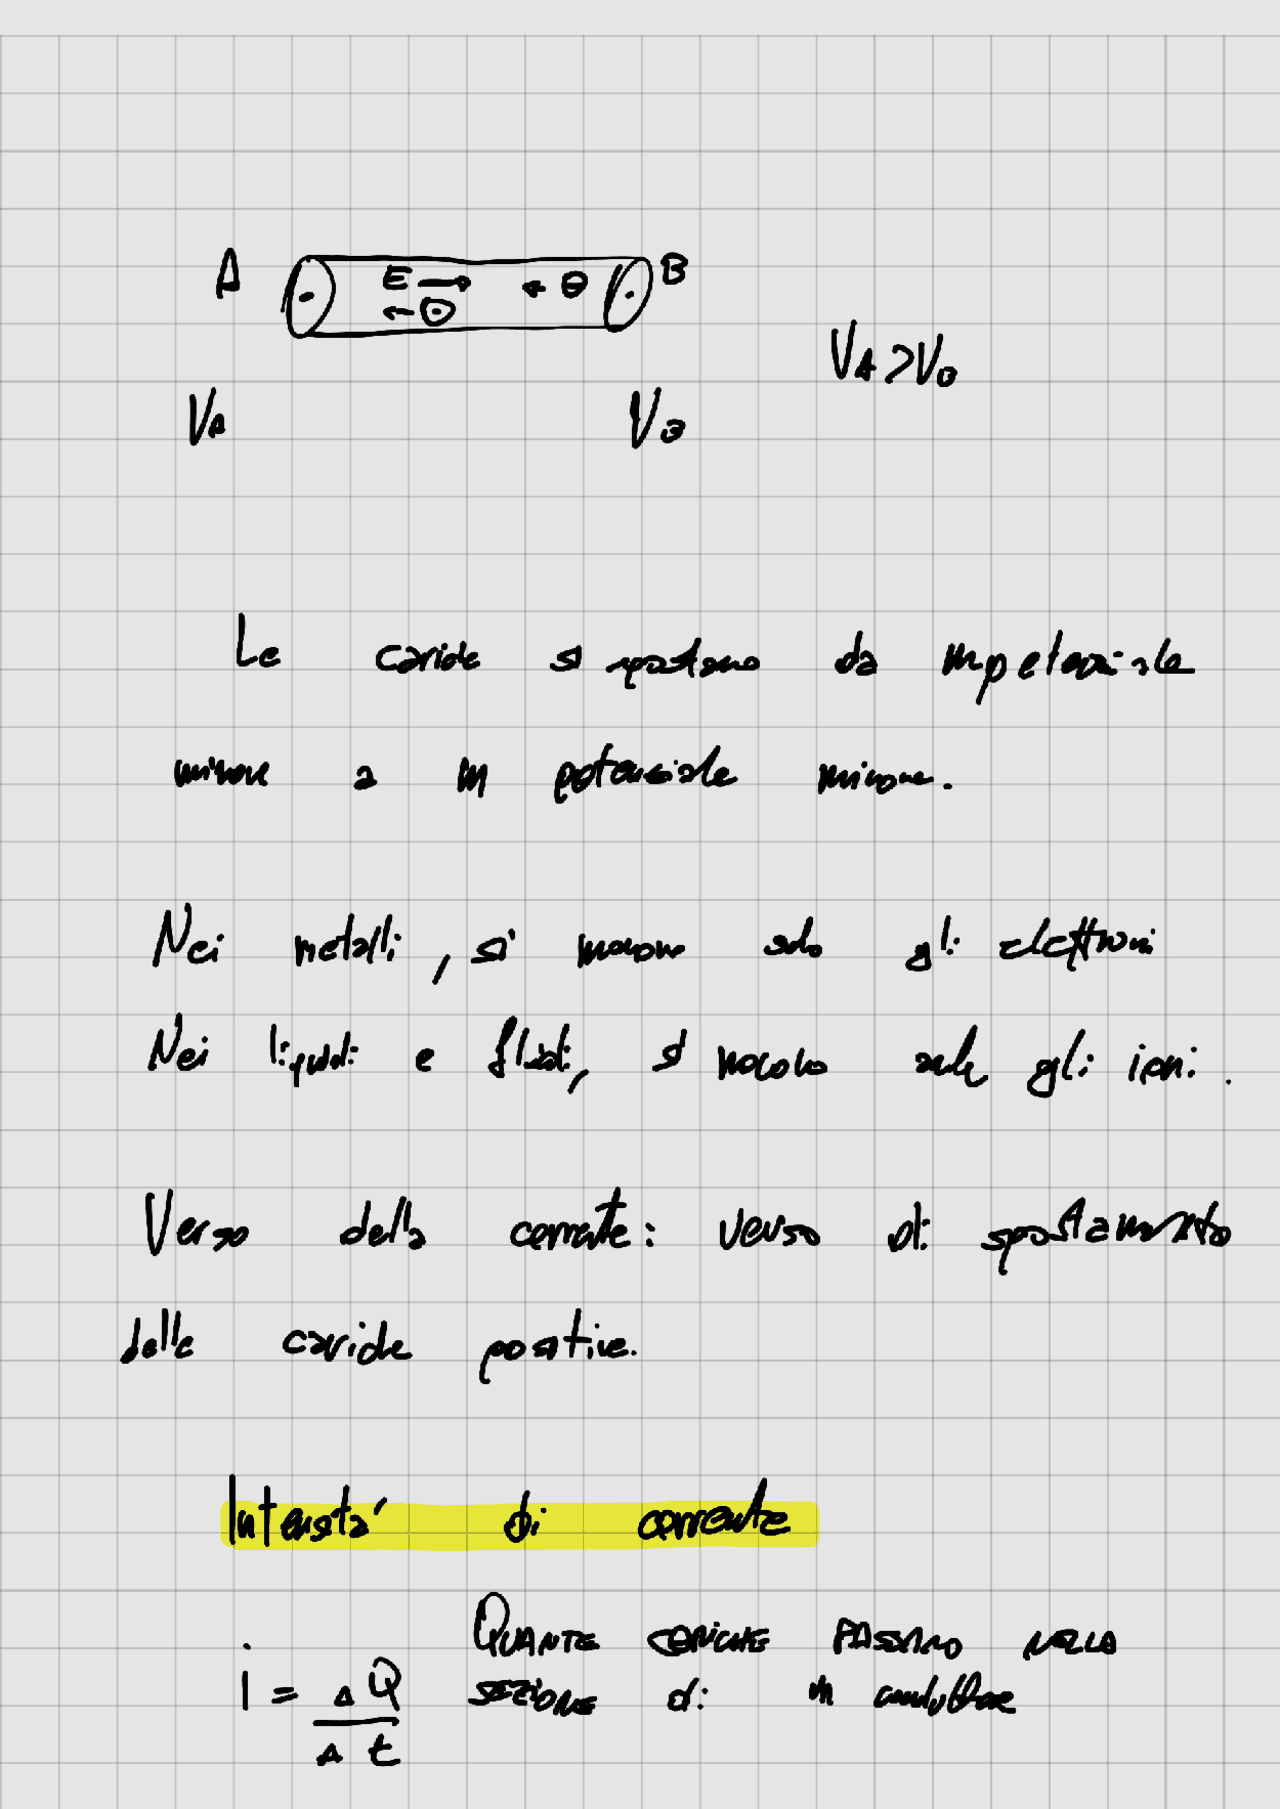 A E → ← ⊖ B
← ⊙
VA > VB
VA VB
Le cariche si spostano da un potenziale
minore a un potenziale minore.
Nei metalli, si muovono solo gli elettroni
Nei liquidi e fluidi, si muovono anche gli ioni.
Verso della corrente: verso di spostamento
delle cariche positive.
Intensità di corrente
QUANTE CARICHE PASSANO NELLA
i = ΔQ / Δt SEZIONE di un conduttore